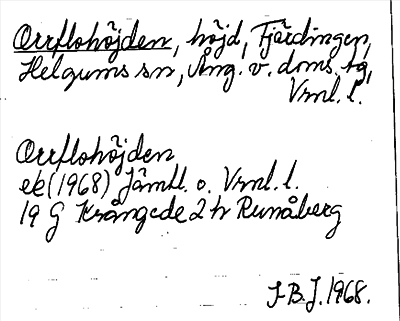 Orrflohöjden, höjd, Fjärdingen,
Helgums sn, Ång. v. doms. tg,
Vrnl. l.
Orrflohöjden
ek (1968) Jämtl. o. Vrnl. l.
19 G Krångede 2 h Runåberg
J-B.J. 1968.